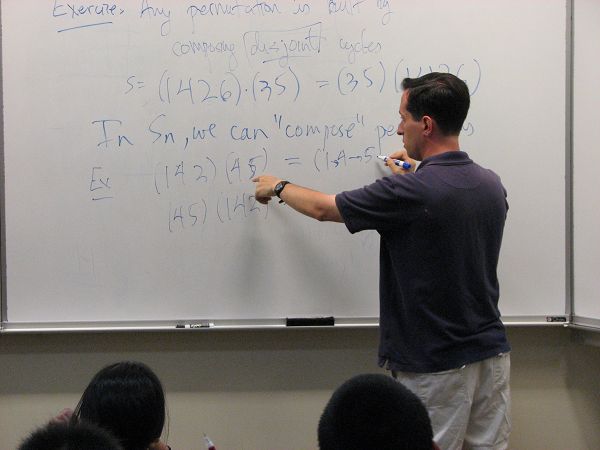 Exercise. Any permutation is built by
composing disjoint cycles
s= (1426)·(35) = (35)(1426)
In Sn, we can "compose"
Ex (142)(45) = (1→4→5
(45)(142)